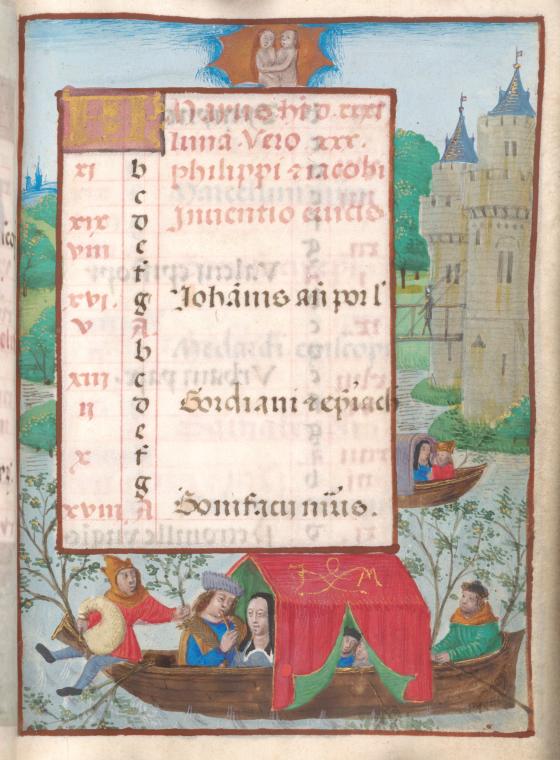 KL Maius ht d. xxxi
luna. Vero xxx.
xi b philippi & iacobi
c
xix d Inuentio crucis
viii e
f
xvi. g Johānis añ por l
v A
b
xiii c
ii d Gordiani & epiach
e
x f
g
xviii A Bonifacii m̄is.
J M